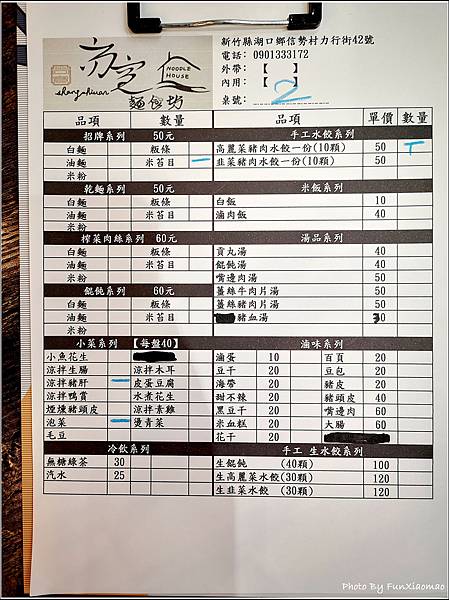 NOODLE
HOUSE
shang-hsuan
麵食坊
新竹縣湖口鄉信勢村力行街42號
電話: 0901333172
外帶: 【 】
內用: 【 】
桌號: 2
品項 數量 品項 單價 數量
招牌系列 50元 手工水餃系列
白麵 粄條 高麗菜豬肉水餃一份(10顆) 50 T
油麵 米苔目 一 韭菜豬肉水餃一份(10顆) 50
米粉
乾麵系列 50元 米飯系列
白麵 粄條 白飯 10
油麵 米苔目 滷肉飯 40
米粉
榨菜肉絲系列 60元 湯品系列
白麵 粄條 貢丸湯 40
油麵 米苔目 餛飩湯 40
米粉 嘴邊肉湯 50
餛飩系列 60元 薑絲牛肉片湯 50
白麵 粄條 薑絲豬肉片湯 50
油麵 米苔目 豬血湯 30
米粉
小菜系列 【每盤40】 滷味系列
小魚花生 滷蛋 10 百頁 20
涼拌生腸 涼拌木耳 豆干 20 豆包 20
涼拌豬肝 一 皮蛋豆腐 海帶 20 豬皮 20
涼拌鴨賞 水煮花生 甜不辣 20 豬頭皮 40
煙燻豬頭皮 涼拌素雞 黑豆干 20 嘴邊肉 60
泡菜 一 燙青菜 米血糕 20 大腸 60
毛豆 花干 20
冷飲系列 手工 生水餃系列
無糖綠茶 30 生餛飩 (40顆) 100
汽水 25 生高麗菜水餃 (30顆) 120
生韭菜水餃 (30顆) 120
Photo By FunXiaomao